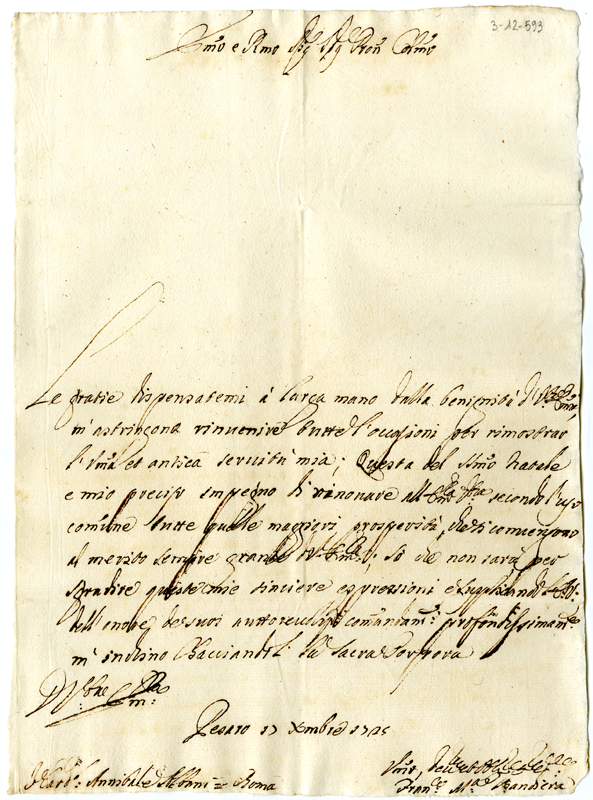 3-12-593
Emo e Rmo Sig Sig Pron Colmo
Le gratie dispensatemi à larga mano dalla benignità di V. Em:
m'astringono rinuenire tutte l'occasioni per rimostrar
l'uma et antica seruitù mia; Questa del SSmo Natale
e mio preciso impegno di rinouare all' Em: Vra secondo l'uso
comune tutte quelle maggiori prosperità, che si conuengono
al merito sempre grande di V. Em:; Sò che non sarà per
sgradire queste mie sinciere espressioni e supplicando
dell'onore de suoi auttoreuoli comandam:ti profondissimam:te
m'inchino Bacciandole la Sacra Porpora
Di V:ra Em:
Pesaro 17 Xmbre 1725
Sr Card: Annibale Albani = Roma
Vmo,
Fran:co Ma: Bandiera